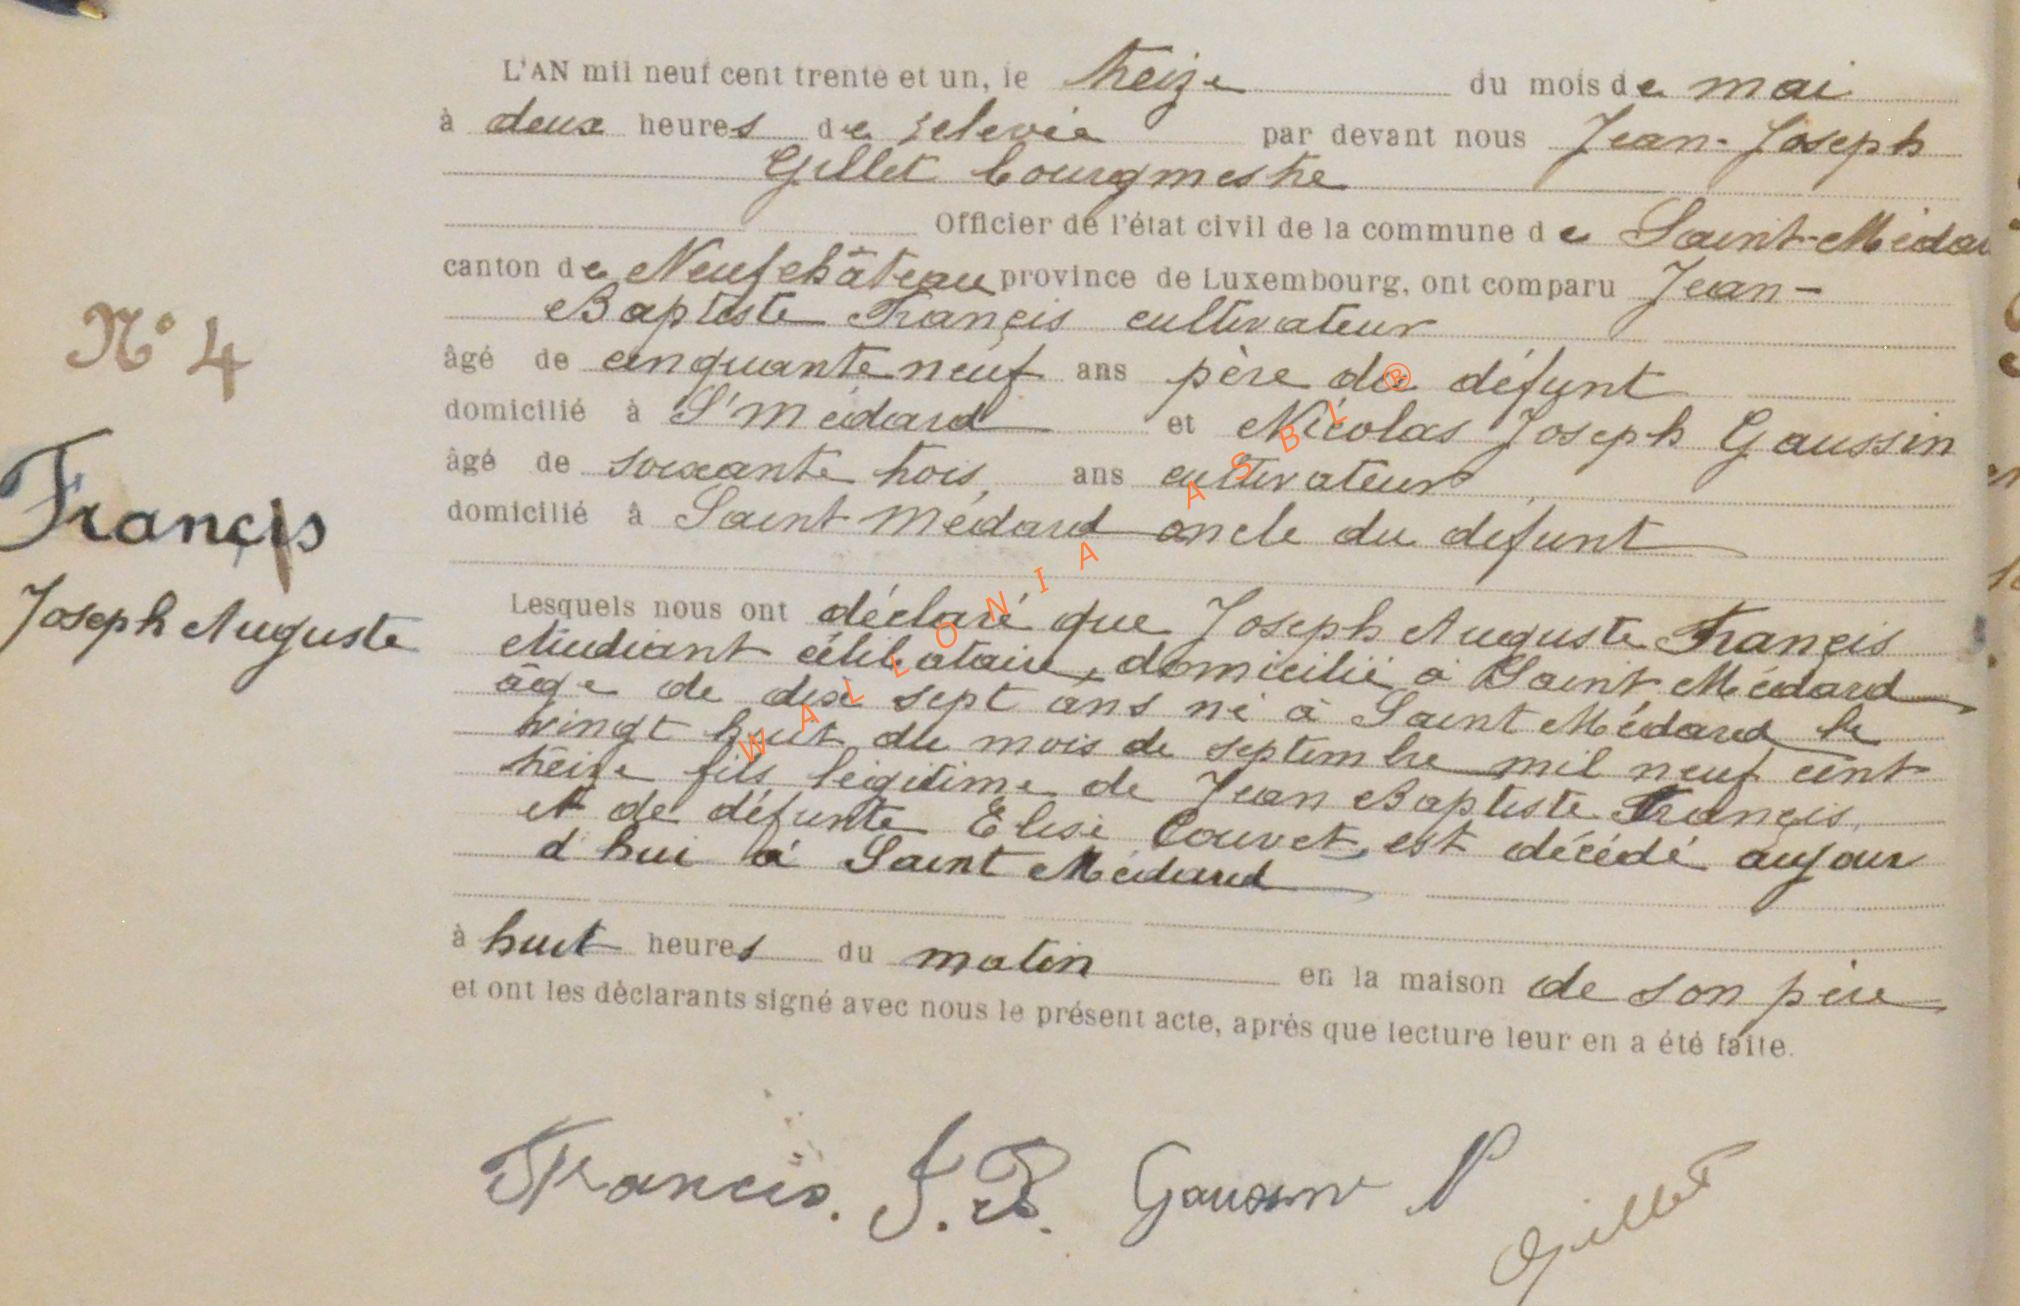 L'AN mil neuf cent trente et un, le treize du mois de mai
à deux heures de relevée par devant nous Jean-Joseph
Gillet bourgmestre
Officier de l'état civil de la commune de Saint-Médar
canton de Neufchâteau province de Luxembourg, ont comparu Jean-
Baptiste Françis cultivateur
âgé de cinquante neuf ans père du défunt
domicilié à St médard et Nicolas Joseph Gaussin
âgé de soixante trois, ans cultivateur
domicilié à Saint Médard oncle du défunt
N° 4
Françis
Joseph Auguste
Lesquels nous ont déclaré que Joseph Auguste Françis
étudiant célibataire, domicilié à Saint Médard
âgé de dix sept ans né à Saint Médard le
vingt huit du mois de septembre mil neuf cent
treize fils légitime de Jean Baptiste Françis,
et de défunte Elise Couvet, est décédé aujour
d'hui à Saint Médard
à huit heures du matin en la maison de son père
et ont les déclarants signé avec nous le présent acte, après que lecture leur en a été faite.
Francis. J. B. Gaussin N Gillet
WALLONIA ASBL ®